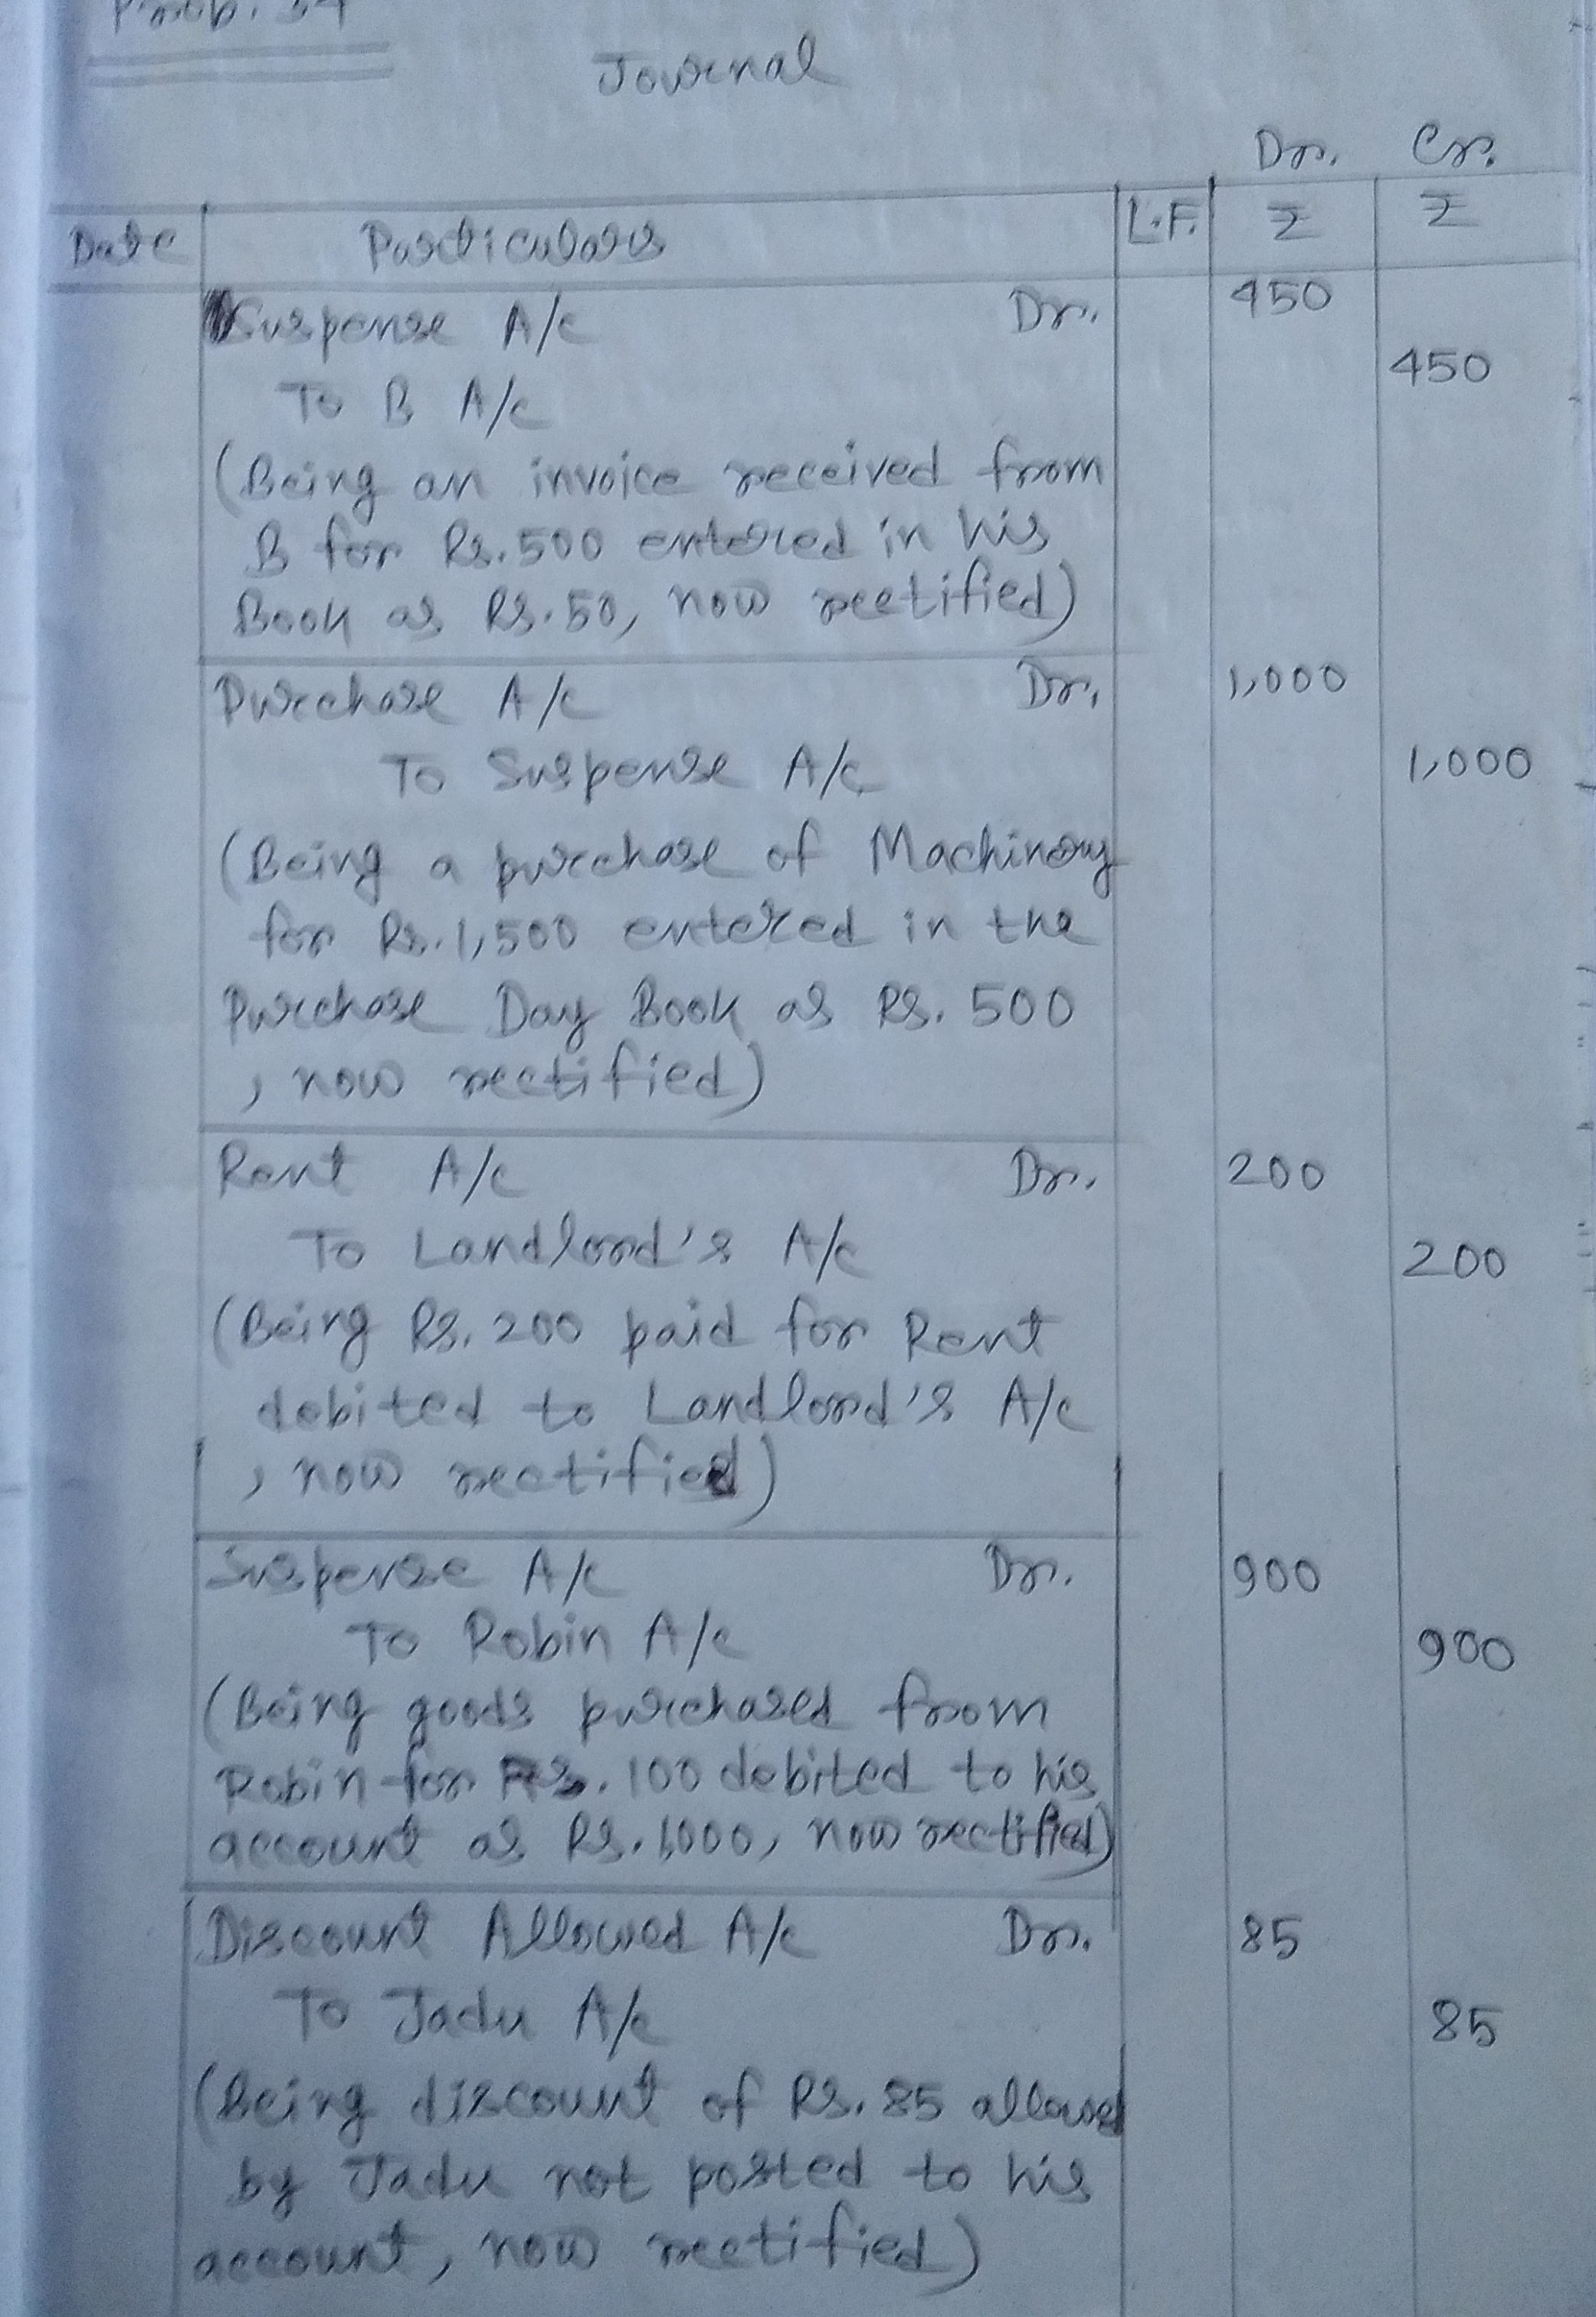 Prob. 34
Journal
Dr. Cr.
Date Particulars L.F. ₹ ₹
Suspense A/c Dr. 450
To B A/c 450
(Being an invoice received from
B for Rs.500 entered in his
Book as Rs.50, now rectified)
Purchase A/c Dr. 1,000
To Suspense A/c 1,000
(Being a purchase of Machinery
for Rs.1,500 entered in the
Purchase Day Book as Rs. 500
, now rectified)
Rent A/c Dr. 200
To Landlord's A/c 200
(Being Rs. 200 paid for Rent
debited to Landlord's A/c
, now rectified)
Suspense A/c Dr. 900
To Robin A/c 900
(Being goods purchased from
Robin for Rs. 100 debited to his
account as Rs. 1,000, now rectified)
Discount Allowed A/c Dr. 85
To Jadu A/c 85
(Being discount of Rs. 85 allowed
by Jadu not posted to his
account, now rectified)